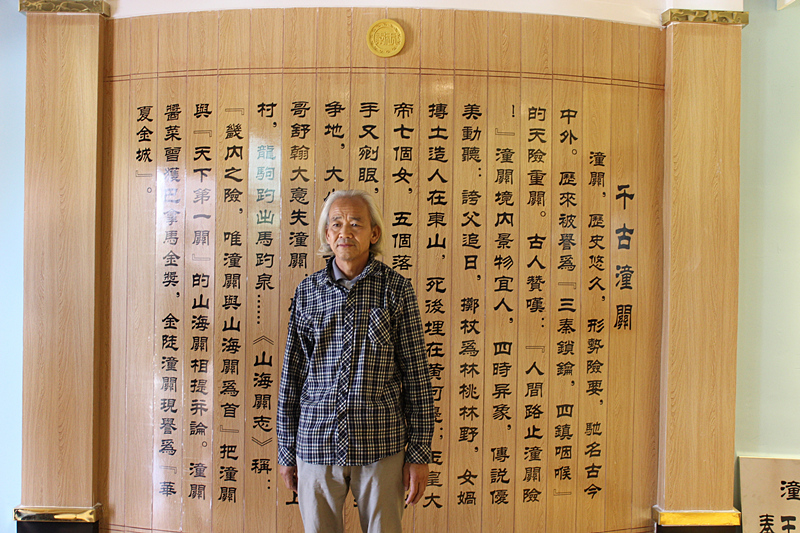 千古潼關
潼關，歷史悠久，形勢險要，馳名古今
中外。歷來被譽爲『三秦鎖鑰，四鎮咽喉』
的天險重關。古人贊嘆：『人間路止潼關險
！』潼關境内景物宜人，四時异象，傳説優
美動聽：誇父追日，擲杖爲林桃林野，女媧
摶土造人在東山，死後埋在黄河；玉皇大
帝七個女，五個落
手又剜眼，
争地，大
哥舒翰大意失潼關；上
村，龍駒趵出馬趵泉……《山海關志》稱：
『畿内之險，唯潼關與山海關爲首』把潼關
與『天下第一關』的山海關相提并論。潼關
醬菜曾獲巴拿馬金獎，金陡潼關現譽爲『華
夏金城』。
潼